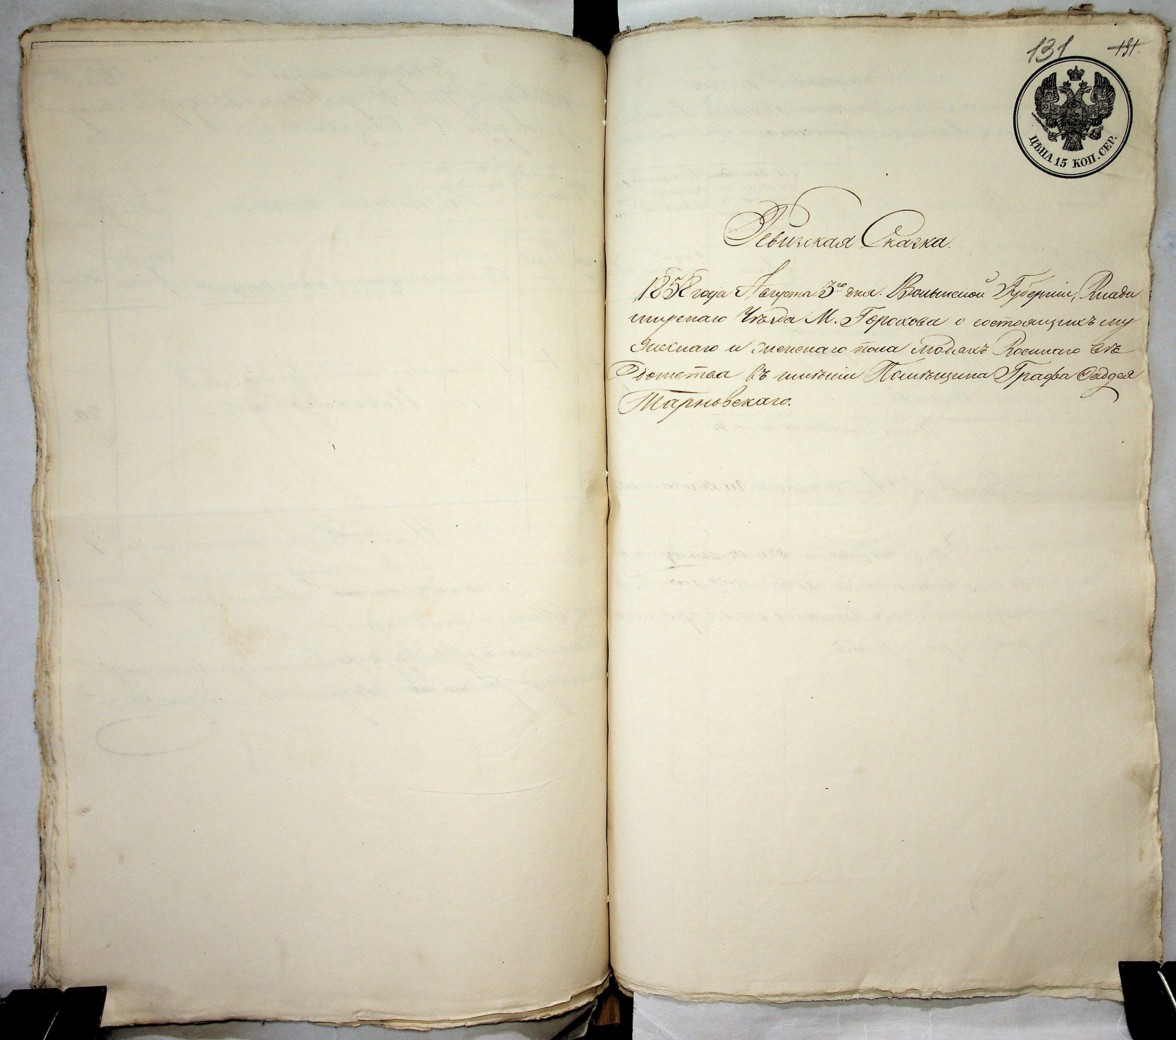 131
131.
ЦѢНА 15 КОП. СЕР.
Ревизская Сказка.
1858 года Августа 3го дня. Волынской Губерніи, Влади
мирскаго Уѣзда М. Горохова о состоящихъ му
жескаго и женскаго пола людяхъ Военнаго вѣ
домства въ имѣніи Помѣщика Графа Фаддея
Тарновскаго.